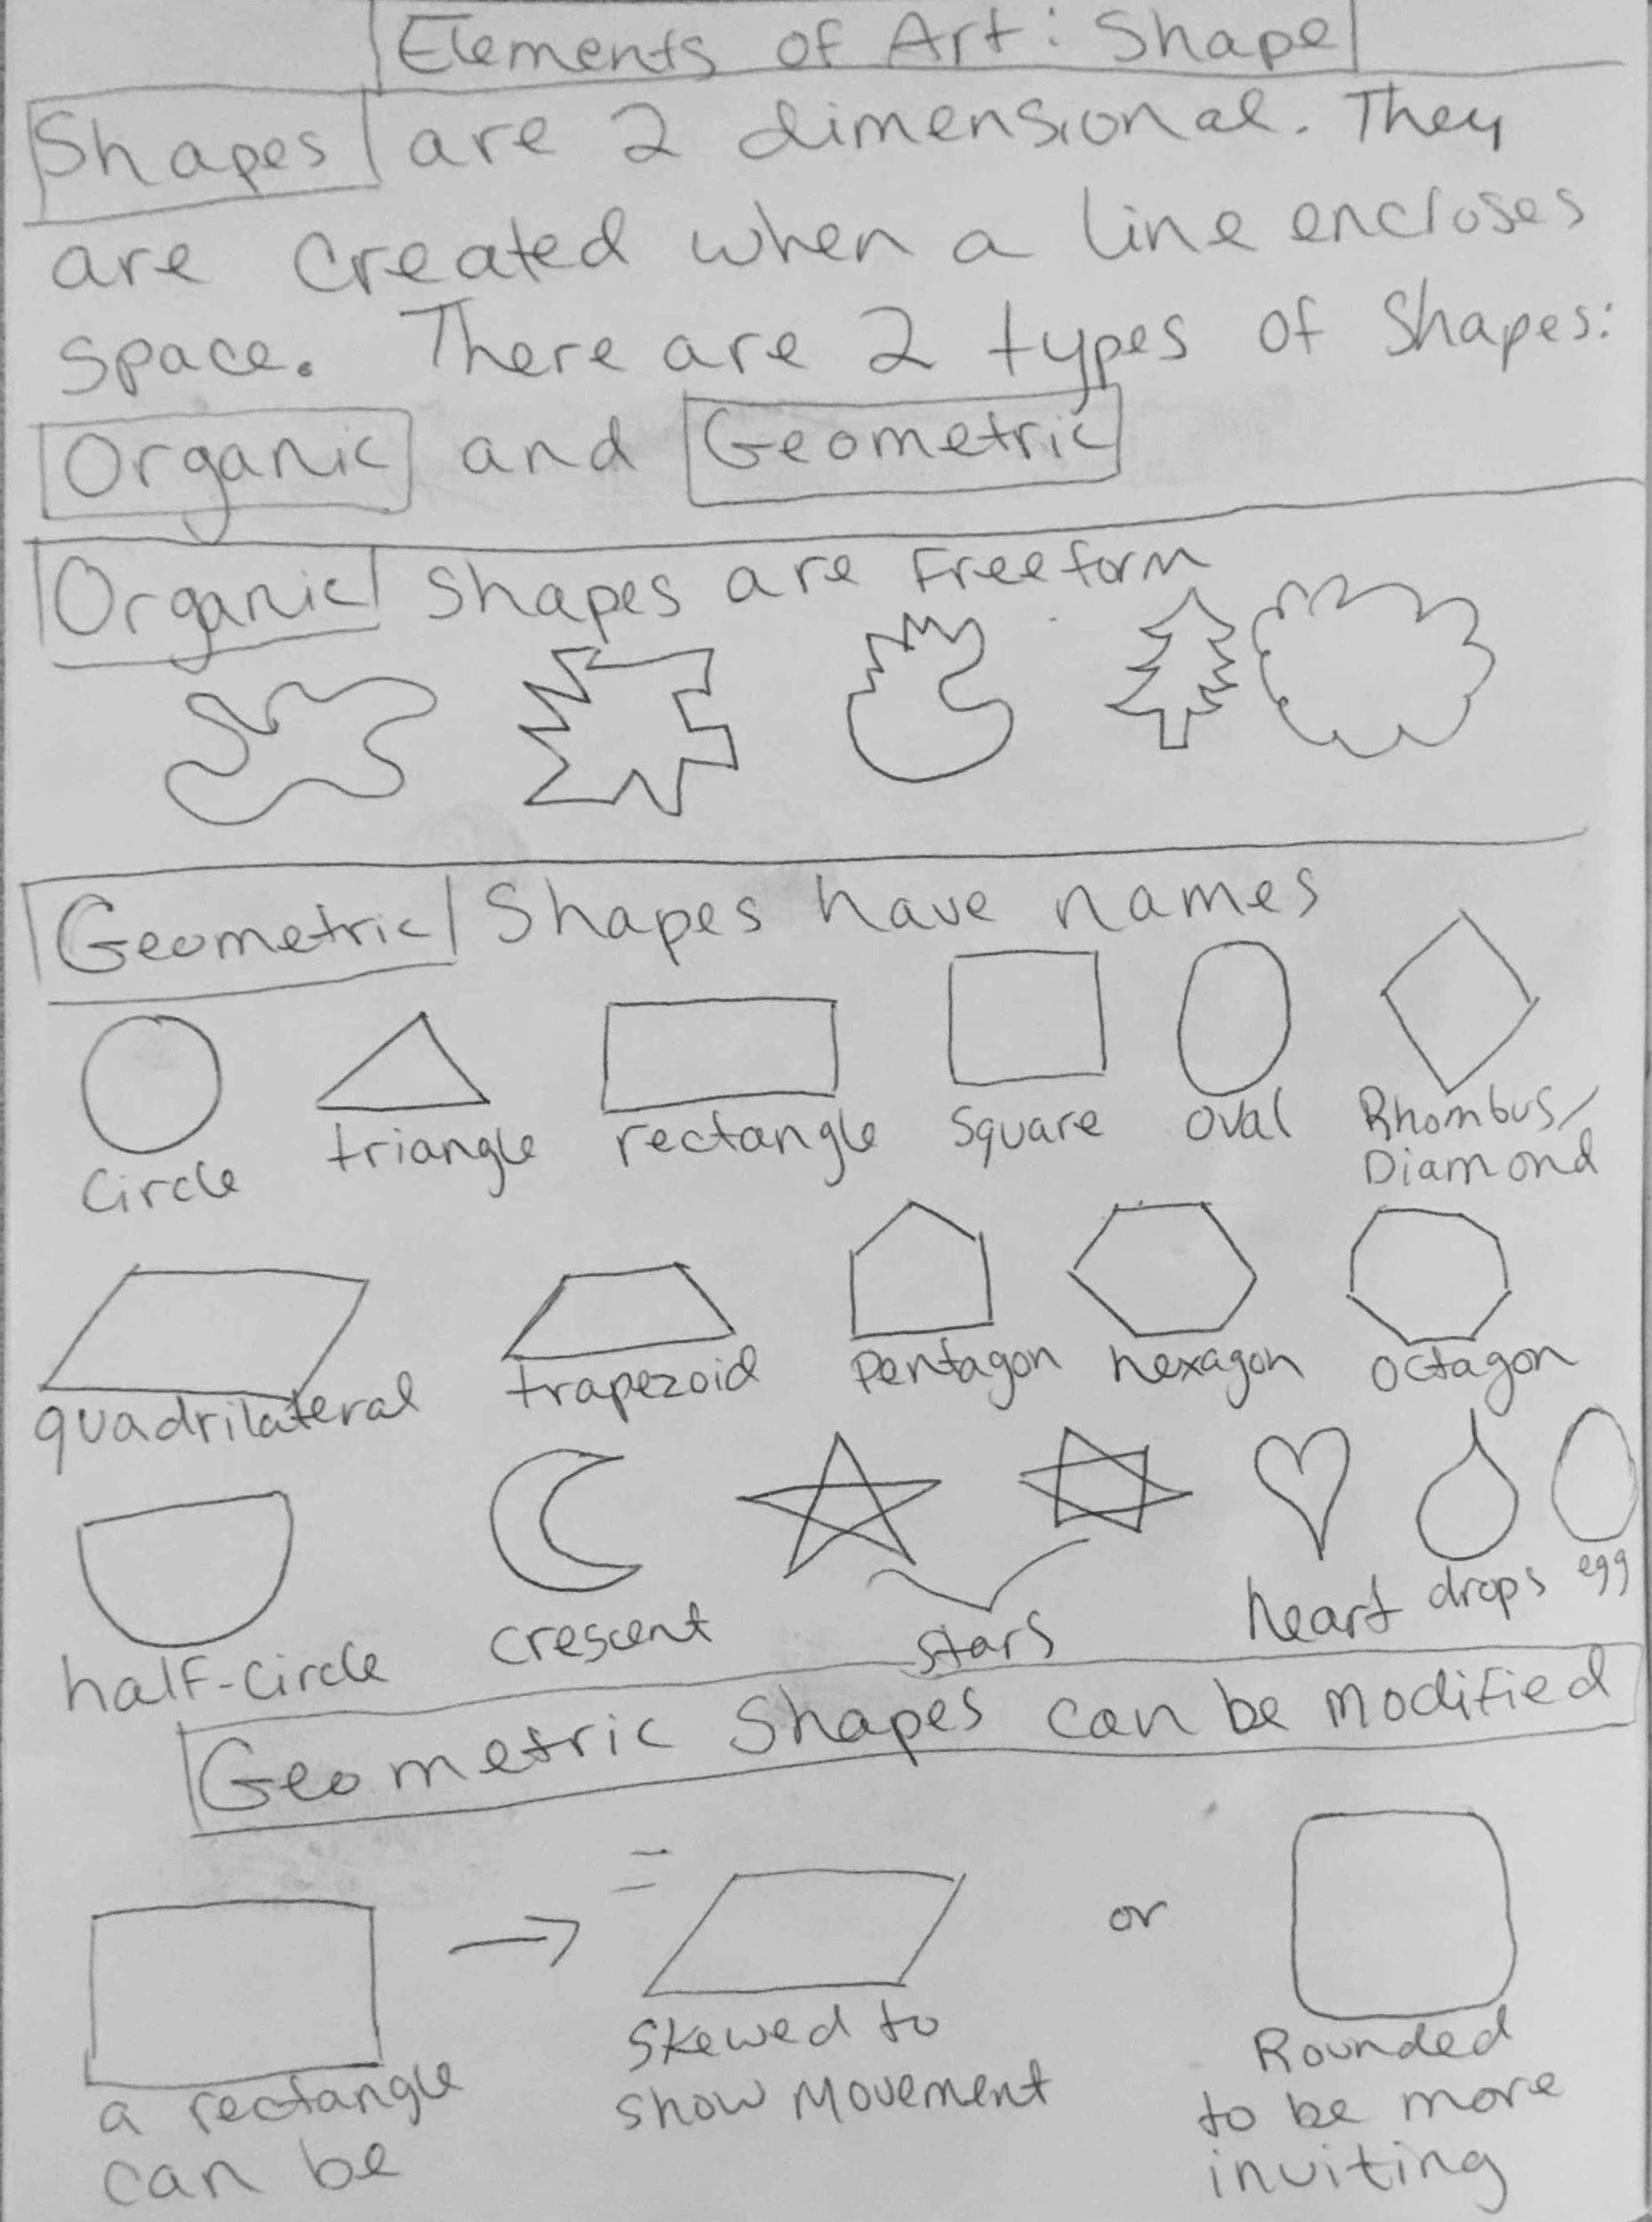 Elements of Art: Shape
Shapes are 2 dimensional. They
are created when a line encloses
space. There are 2 types of Shapes:
Organic and Geometric
Organic Shapes are Freeform
Geometric Shapes have names
Circle triangle rectangle Square oval Rhombus/
Diamond
quadrilateral trapezoid Pentagon hexagon octagon
half-circle crescent stars heart drops egg
Geometric Shapes can be Modified
or
a rectangle
can be
Skewed to
show Movement
Rounded
to be more
inviting